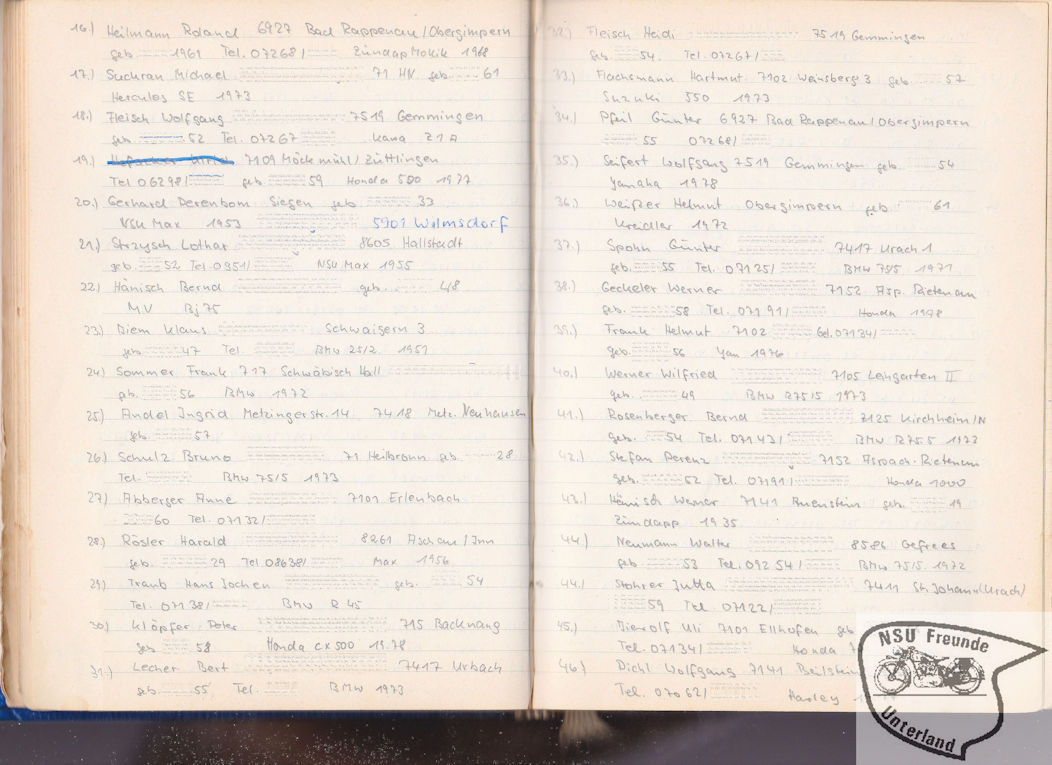 16.) Heilmann Roland 6927 Bad Rappenau/Obergimpern
geb 1961 Tel. 07268/ Zündapp Mokik 1968
17.) Suchran Michael 71 HN. geb. 61
Hercules SE 1973
18.) Fleisch Wolfgang 7519 Gemmingen
geb. 52 Tel. 07267 Kawa Z1A
19.) 7109 Möckmühl/Züttlingen
Tel 06298/ geb 59 Honda 500 1977
20.) Gerhard Derenbom Siegen geb 33
NSU Max 1953 5901 Wilmsdorf
21.) Strzysch Lothar 8605 Hallstadt
geb. 52 Tel. 0951/ NSU Max 1955
22.) Hänisch Bernd geb. 48
MV Bj 75
23.) Diem Klaus Schwaigern 3
geb. 47 Tel. BMW 25/2 1951
24.) Sommer Frank 717 Schwäbisch Hall
gb. 56 BMW 1972
25.) Andel Ingrid Metzingerstr. 14. 7418 Metz. Neuhausen
geb. 57
26.) Schulz Bruno 71 Heilbronn geb. 28
Tel. BMW 75/5 1973
27.) Abberger Anne 7101 Erlenbach
60 Tel. 07132/
28.) Rösler Harald 8261 Aschau/Inn
geb. 29 Tel 08638/ Max 1956
29.) Traub Hans Jochen geb. 54
Tel. 07138/ BMW R 45
30.) Klöpfer Peter 715 Backnang
geb 58 Honda cx 500 1978
31.) Lecher Bert 7417 Urbach
geb. 55 Tel. BMW 1973
32.) Fleisch Heidi 7519 Gemmingen
geb. 54. Tel. 07267/
33.) Flachsmann Hartmut 7102 Weinsberg 3 geb 57
Suzuki 550 1973
34.) Pfeil Günter 6927 Bad Rappenau/Obergimpern
55 07268/
35.) Seifert Wolfgang 7519 Gemmingen geb. 54
Yamaha 1978
36.) Weißer Helmut Obergimpern geb. 61
Kreidler 1972
37.) Spohn Günter 7417 Urach 1
geb. 55 Tel. 07125/ BMW 75/5 1971
38.) Geckeler Werner 7152 Asp. Rietenau
geb. 58 Tel. 07191/ Honda 1978
39.) Frank Helmut 7102 Tel. 07134/
geb. 56 Yam 1976
40.) Werner Wilfried 7105 Leingarten II
geb. 49 BMW R75/5 1973
41.) Rosenberger Bernd 7125 Kirchheim/N
geb. 54 Tel. 07143/ BMW R75.5 1973
42.) Stefan Perenz 7152 Aspach-Rietenau
geb. 52 Tel. 07191/ Honda 1000
43.) Hänisch Werner 7141 geb. 19
Zündapp 1935
44.) Neumann Walter 8586 Gefrees
geb 53 Tel. 09254/ BMW 75/5. 1972
44.) Stohrer Jutta 7411 St. Johann (Urach)
59 Tel. 07122/
45.) Dierolf Uli 7101 Ellhofen geb
Tel. 07134/ Honda
46.) Dichl Wolfgang 7141 Beilstein
Tel. 07062/ Harley
NSU Freunde
Unterland